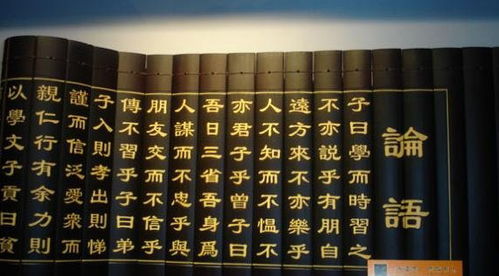 論語
子曰學而時習之
不亦説乎有朋自
遠方來不亦樂乎
人不知而不愠不
亦君子乎曾子曰
吾日三省吾身爲
人謀而不忠乎與
朋友交而不信乎
傳不習乎子曰弟
子入則孝出則悌
謹而信泛愛衆而
親仁行有余力則
以學文子貢曰貧